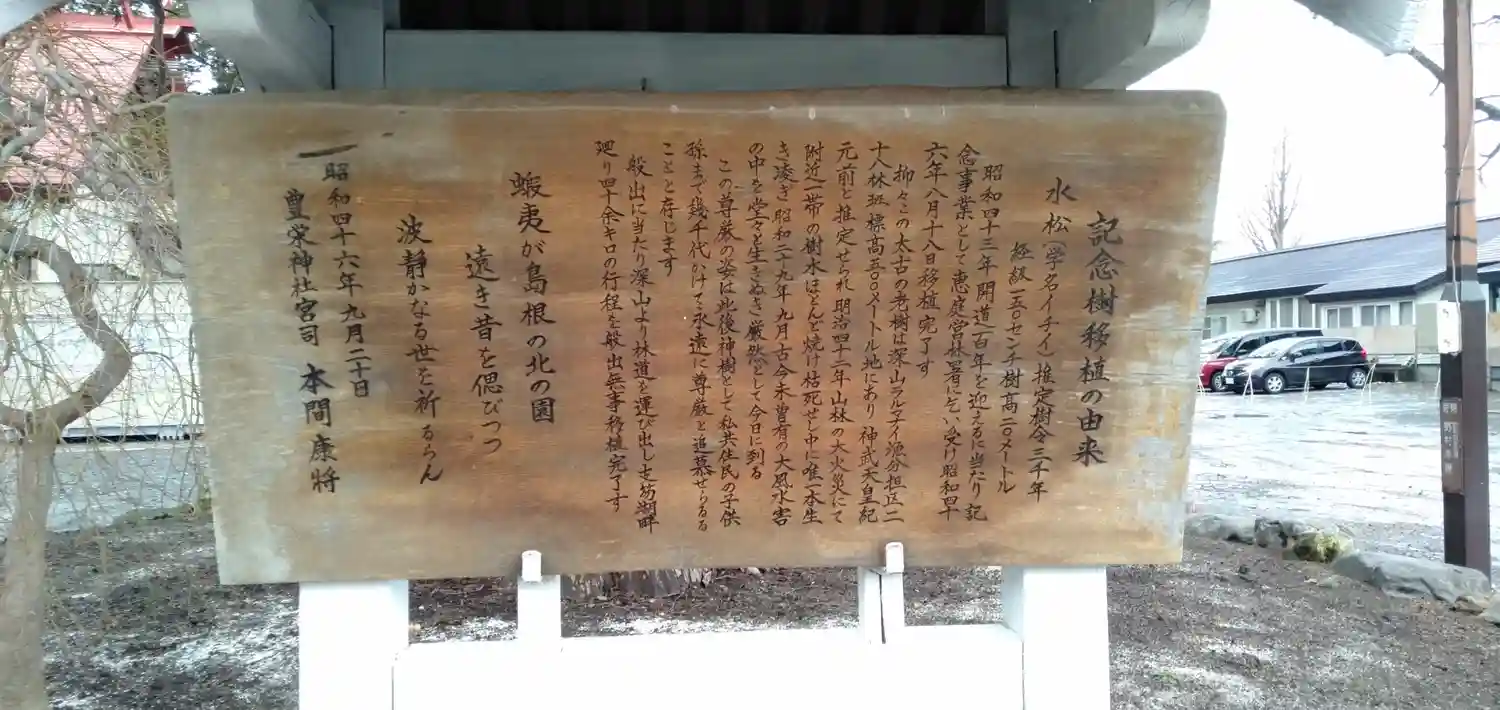 記念樹移植の由来
水松（学名イチイ）推定樹令三千年
経級一五〇センチ樹高二〇メートル
昭和四十三年開道百年を迎えるに当たり記
念事業として恵庭営林署に乞い受け昭和四十
六年八月十八日移植完了す
抑々この太古の老樹は深山ラルマナイ源分担区二
十八林班標高五〇〇メートル地にあり神武天皇紀
元前と推定せられ明治四十二年山林の大火災にて
附近一帯の樹木ほとんど焼け枯死せし中に唯一本生
き凌ぎ昭和二十九年九月古今未曽有の大風水害
の中を堂々と生きぬき厳然として今日に到る
この尊厳の姿は此後神樹として私共住民の子供
孫まで幾千代かけて永遠に尊厳と追慕せらるる
ことと存じます
般出に当たり深山より林道を運び出し支笏湖畔
廻り四十余キロの行程を般出無事移植完了す
蝦夷が島根の北の園
遠き昔を偲びつつ
波静かなる世を祈るらん
昭和四十六年九月二十日
豊栄神社宮司 本間康将